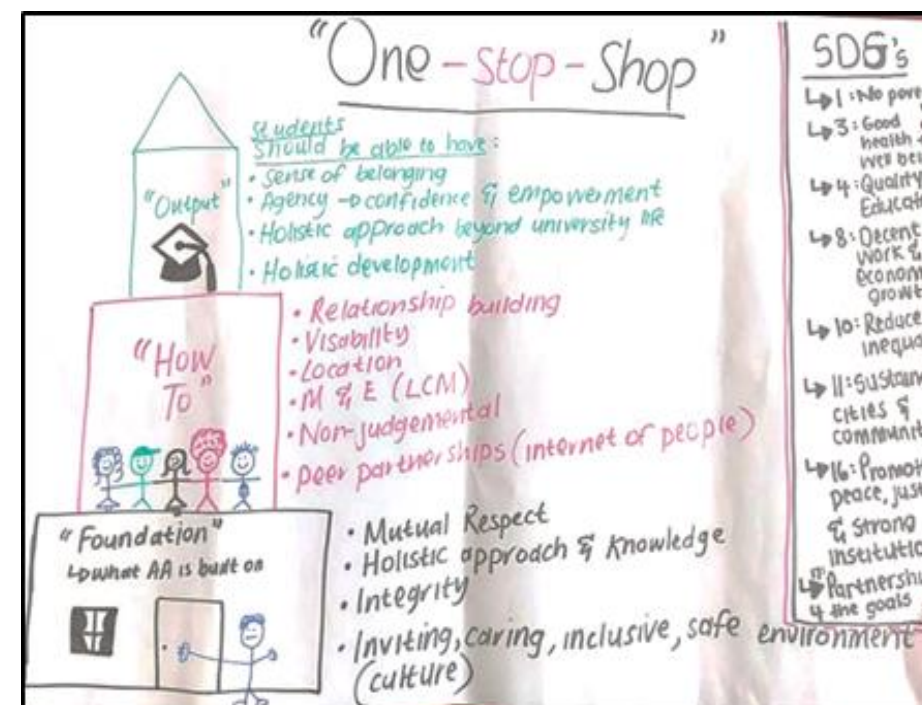 "One-Stop-Shop"
"Output"
Students
Should be able to have:
• Sense of belonging
• Agency → confidence & empowerment
• Holistic approach beyond university life
• Holistic development
"How
To"
• Relationship building
• Visability
• Location
• M & E (LCM)
• Non-judgemental
• Peer partnerships (internet of people)
"Foundation"
↳ what AA is built on
• Mutual Respect
• Holistic approach & Knowledge
• Integrity
• Inviting, caring, inclusive, safe environment
(culture)
SDG's
↳ 1: No pove
↳ 3: Good
health
well bei
↳ 4: Quality
Educati
↳ 8: Decent
work &
econom
growt
↳ 10: Reduce
inequa
↳ 11: Sustain
cities &
communit
↳ 16: Promoti
peace, jus
& strong
institutio
↳ 17: Partnershi
4 the goals